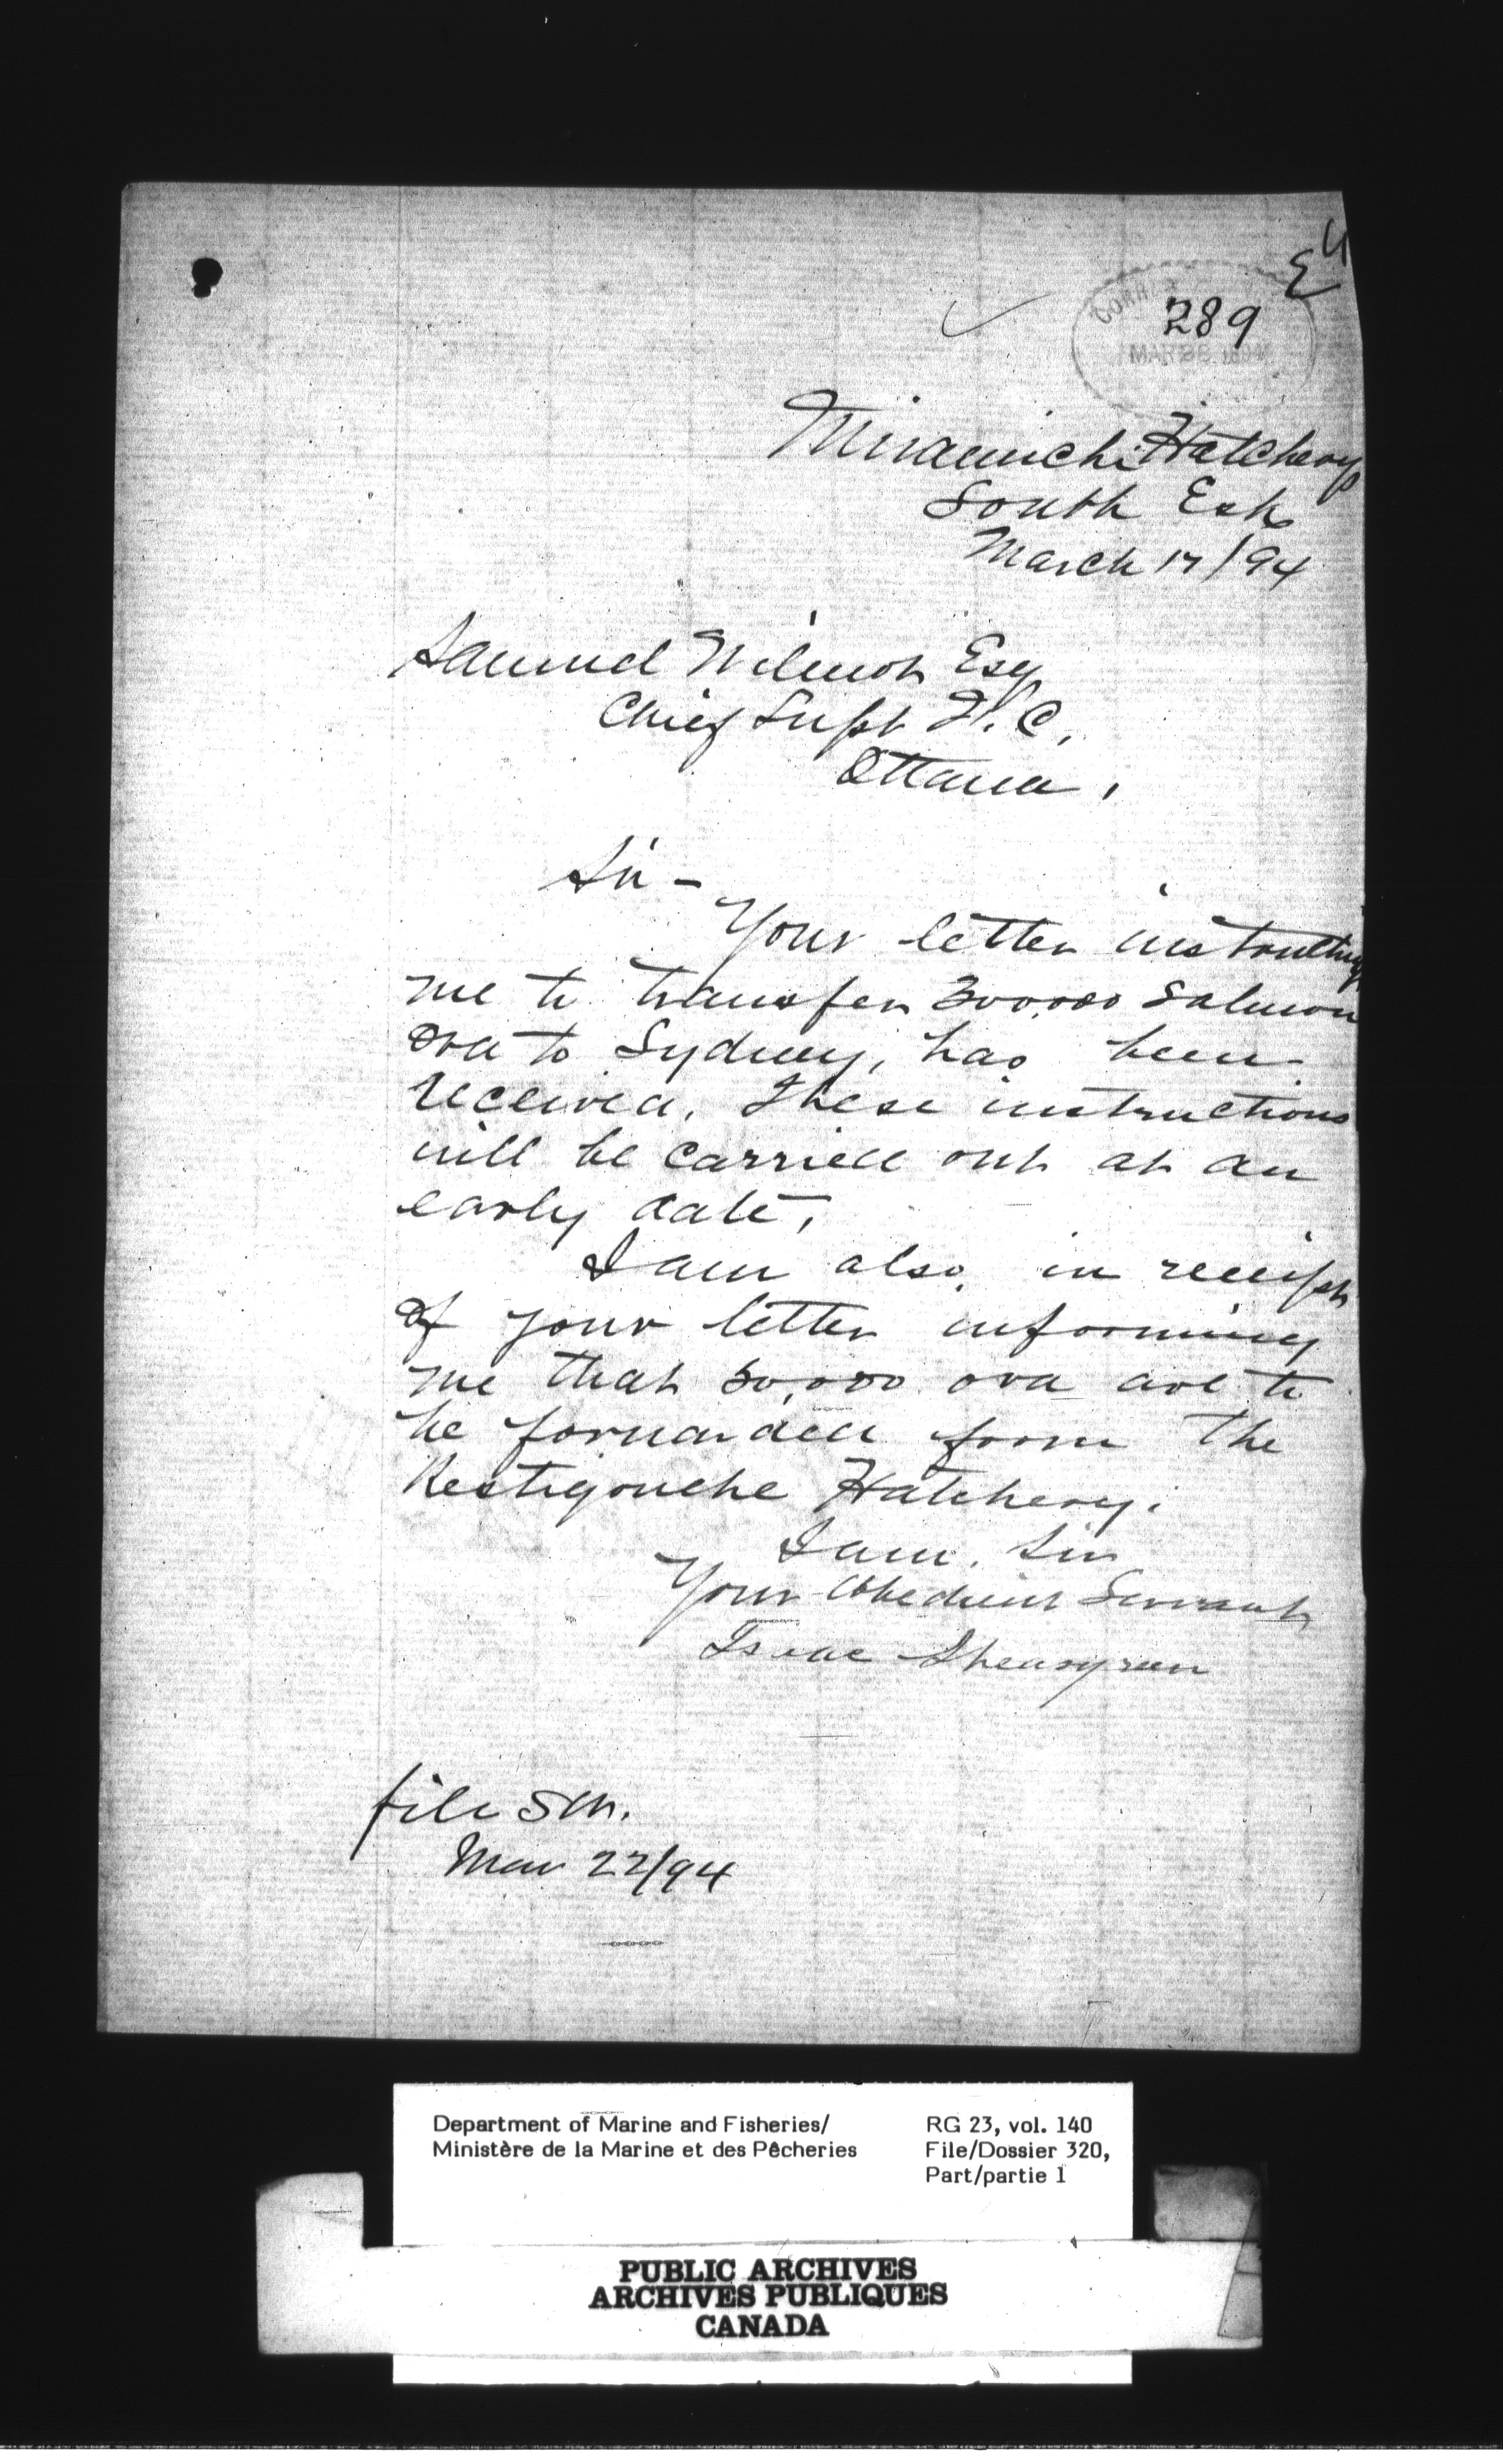 289
Miramichi Hatchery
South Esk
March 17/94
Samuel Wilmot Esq
Chief Supt F. C.
Ottawa,
Sir -
Your letter instructing
me to transfer 300,000 Salmon
ova to Sydney, has been
received. These instructions
will be carried out at an
early date,
I am also in receipt
of your letter informing
me that 50,000 ova are to
be forwarded from the
Restigouche Hatchery.
I am, Sir
Your Obedient Servant
Isaac Sheasgreen
file SW.
Mar 22/94
Department of Marine and Fisheries/
Ministère de la Marine et des Pêcheries
RG 23, vol. 140
File/Dossier 320,
Part/partie 1
PUBLIC ARCHIVES
ARCHIVES PUBLIQUES
CANADA